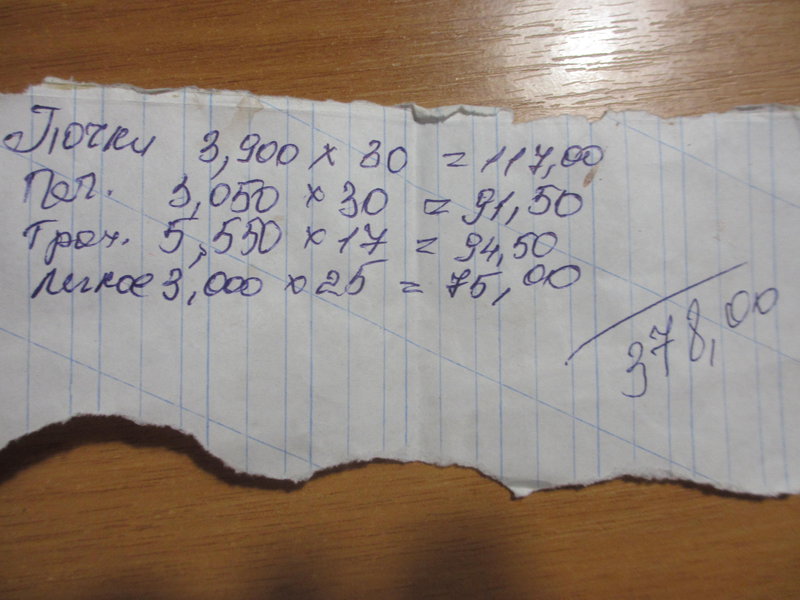 Почки 3,900 x 30 = 117,00
Поч. 3,050 x 30 = 91,50
Трах. 5,550 x 17 = 94,50
легкое 3,000 x 25 = 75,00
378,00